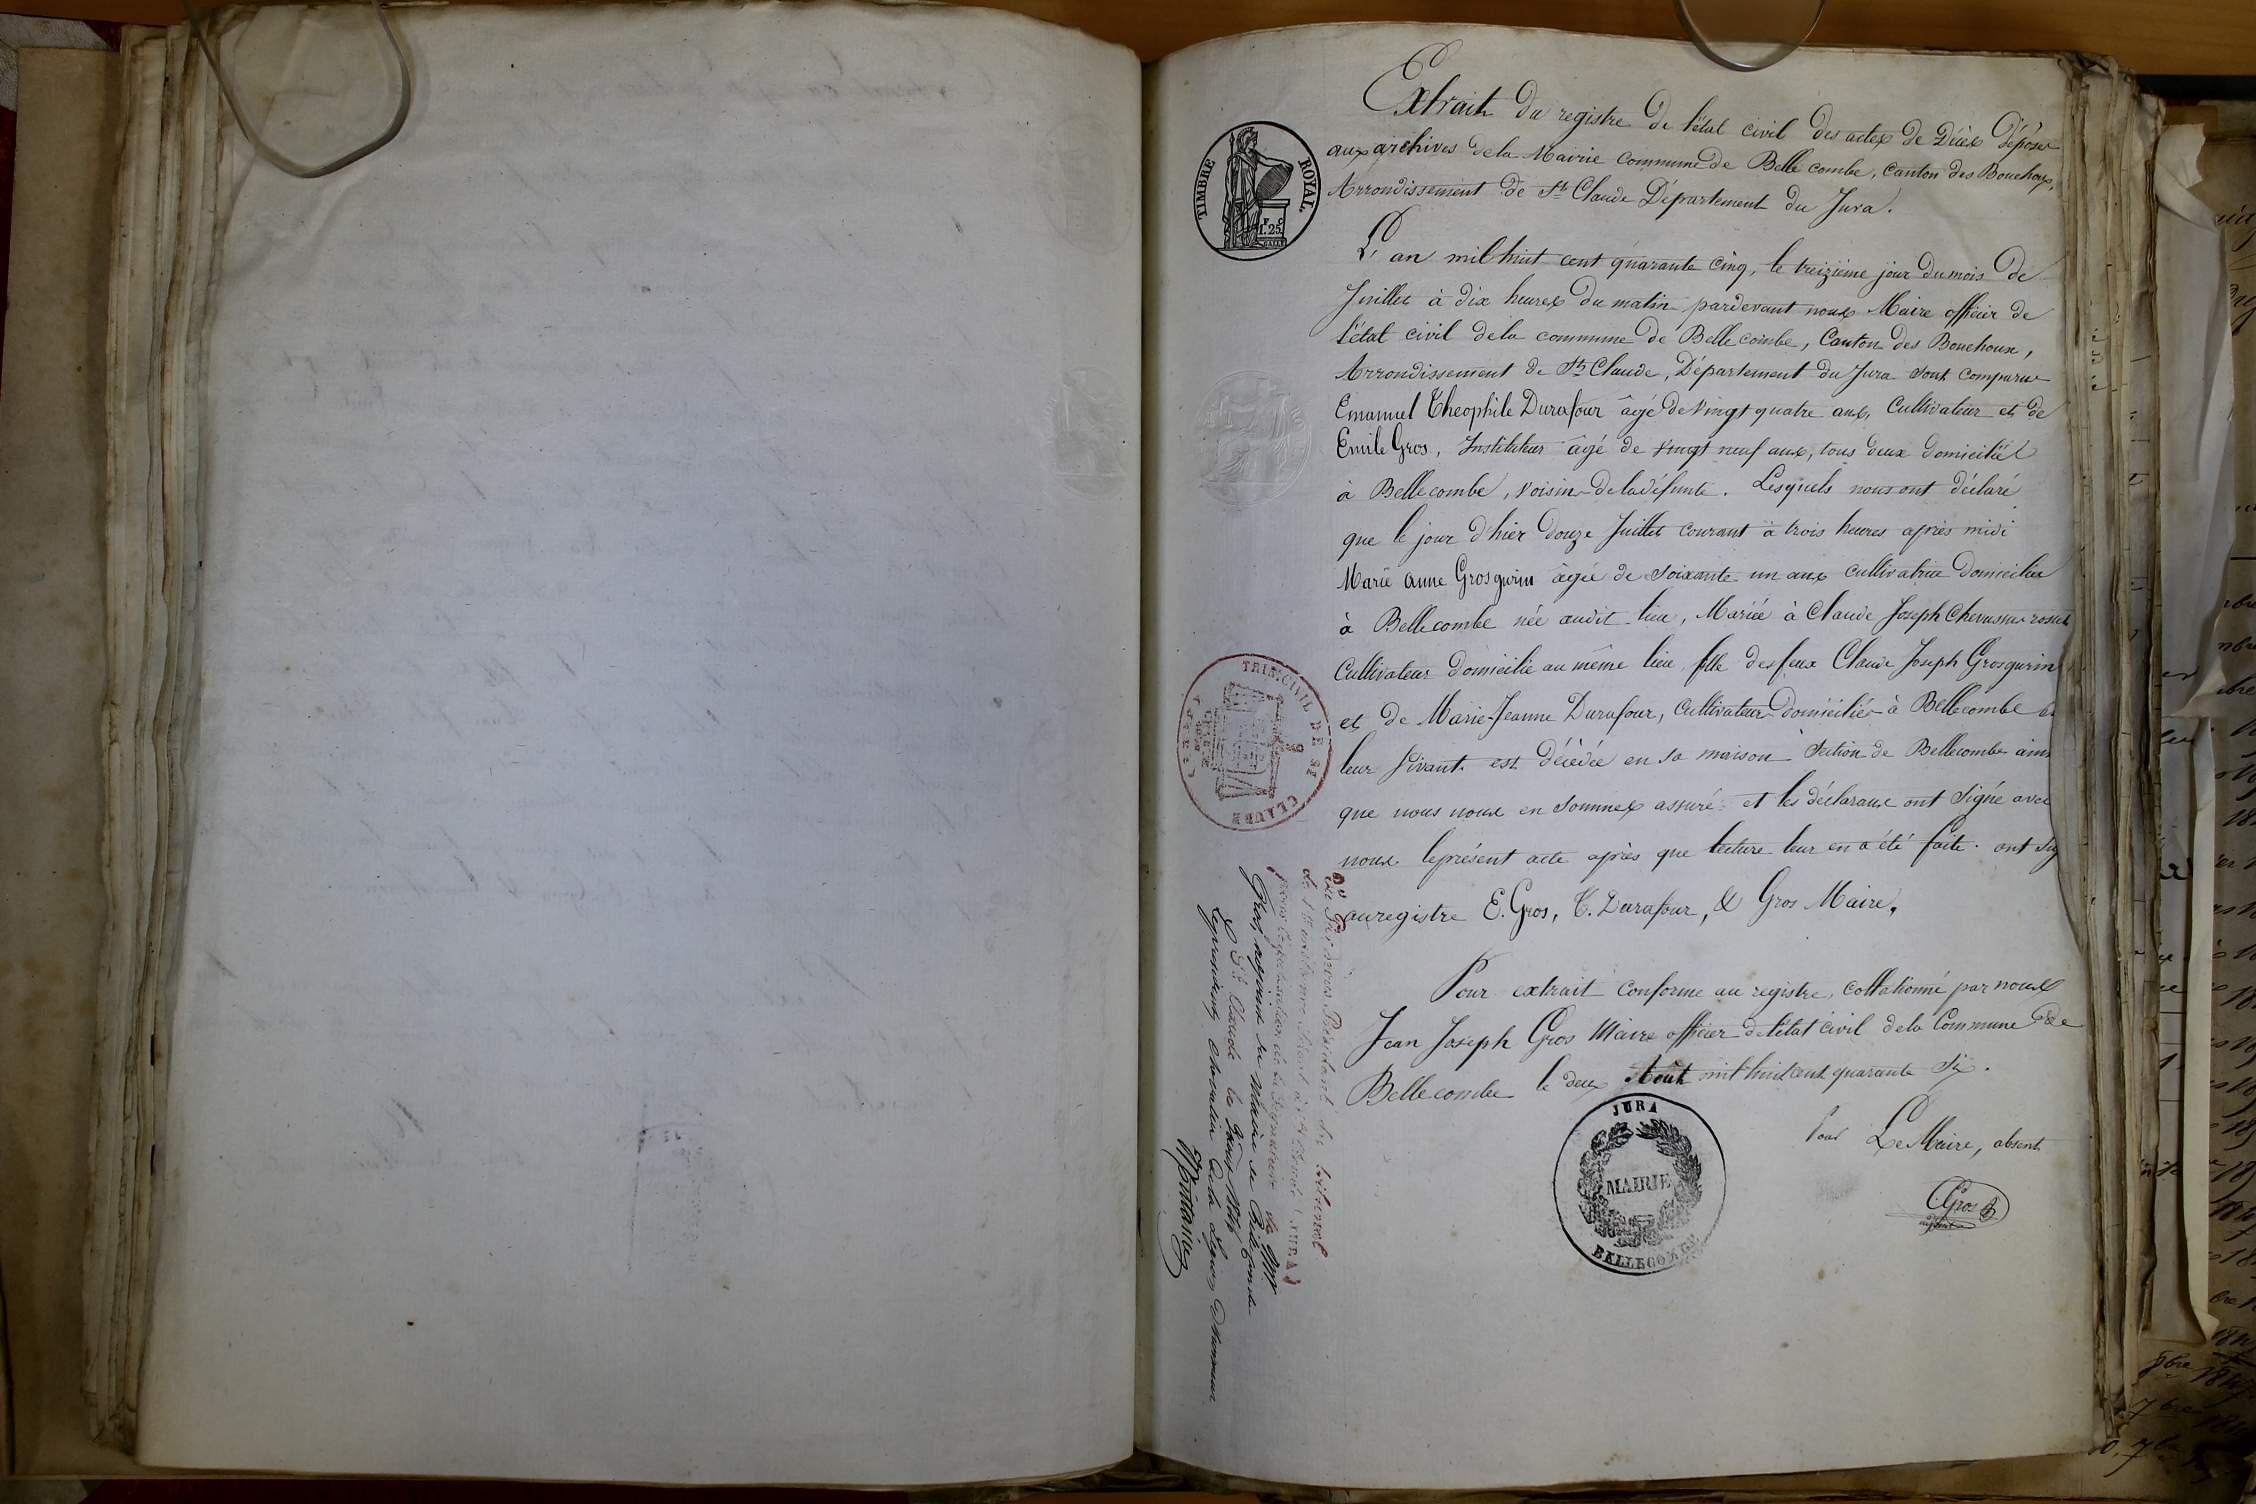 Extrait du registre de l'état civil des actes de Décès déposés
aux archives de la Mairie commune de Belle combe, canton des Bouchoux,
Arrondissement de St Claude Département du Jura.
TIMBRE ROYAL.
F. C.
1.25
L'an mil huit cent quarante cinq, le treizième jour du mois de
Juillet à dix heures du matin pardevant nous Maire officier de
l'état civil de la commune de Belle combe, Canton des Bouchoux,
Arrondissement de St Claude, Département du Jura sont comparus
Emanuel Theophile Durafour âgé de vingt quatre ans, Cultivateur et de
Emile Gros, Instituteur âgé de vingt neuf ans, tous deux domiciliés
à Bellecombe, voisins de la défunte. Lesquels nous ont déclaré
que le jour d'hier douze Juillet courant à trois heures après midi
Marie anne Grosgurin âgée de soixante un ans cultivatrice domiciliée
à Bellecombe née audit lieu, Mariée à Claude Joseph Chevassus rosset
Cultivateur domicilié au même lieu fille des feux Claude Joseph Grosgurin
et de Marie-Jeanne Durafour, Cultivateurs domiciliés à Bellecombe
leur vivant. est décédée en sa maison Section de Bellecombe ains
que nous nous en sommes assuré. et les déclarans ont signé avec
nous le présent acte après que lecture leur en a été faite. ont sig
au registre E. Gros, T. Durafour, & Gros Maire.
Pour extrait conforme au registre, collationné par nous
Jean Joseph Gros Maire officier de l'état civil de la Commune de
Bellecombe le deux Août mil huit cent quarante six.
Pour Le Maire, absent
Gros
adjoint
JURA
MAIRIE
BELLECOMBE
TRIB. CIVIL DE St CLAUDE
Vu Par Nous Président du tribunal
de 1re instance séant à St Claude (JURA)
pour légalisation de la signature de Mr
Gros, adjoint du Maire de Bellecombe
à St Claude le 1846
Le président, Chevalier de la Légion d'honneur